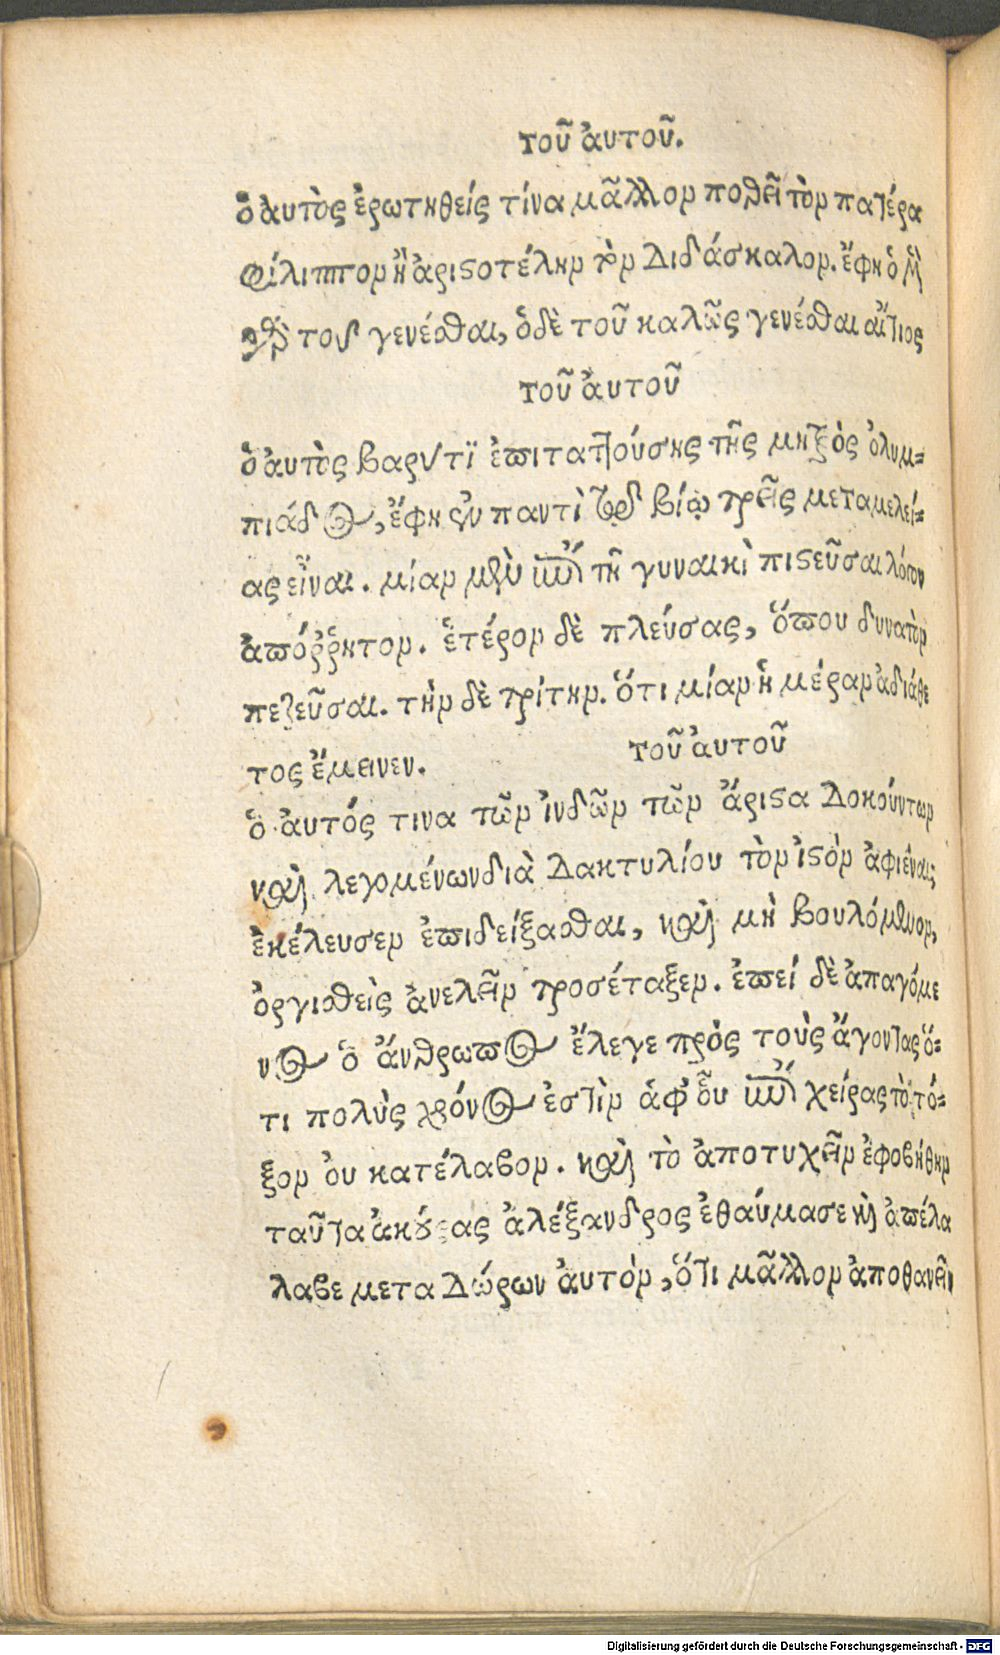 τοῦ ἀυτοῦ.
ὁ ἀυτὸς ἐρωτηθείς τίνα μᾶλλον ποθεῖ τὸν πατέρα
Φίλιππον ἢ ἀριστοτέλην τὸν Διδάσκαλον. ἔφη ὁ μὲν
γὰρ τοῦ γενέσθαι, ὁ δὲ τοῦ καλῶς γενέσθαι αἴτιος
τοῦ ἀυτοῦ
ὁ ἀυτὸς βαρύ τι ἐπιταττούσης τῆς μητρὸς ὀλυμ-
πιάδος, ἔφη ἐν παντὶ τῷ βίῳ τρεῖς μεταμελεί-
ας εἶναι. μίαν μὲν τῇ γυναικὶ πιστεῦσαι λόγον
ἀπόῤῥητον. ἑτέρον δὲ πλεύσας, ὅπου δυνατὸν
πεζεῦσαι. τὴν δὲ τρίτην. ὅτι μίαν ἡ μέραν ἀδιάθε
τος ἔμεινεν.
τοῦ ἀυτοῦ
ὁ ἀυτός τινα τῶν ἰνδῶν τῶν ἄριστα Δοκούντων
καὶ λεγομένων διὰ Δακτυλίου τὸν ἰστὸν ἀφιέναι
ἐκέλευσεν ἐπιδείξασθαι, καὶ μὴ βουλόμενον,
ὀργισθεὶς ἀνελεῖν προσέταξεν. ἐπεί δὲ ἀπαγόμε
νος ὁ ἄνθρωπος ἔλεγε πρὸς τοὺς ἄγοντας ὅ-
τι πολὺς χρόνος ἐστὶν ἀφ' οὗ χείρας τὸ τό-
ξον ὀυ κατέλαβον. καὶ τὸ ἀποτυχεῖν ἐφοβήθην
ταῦτα ἀκούσας ἀλέξανδρος ἐθαύμασε καὶ ἀπέλα
λαβε μετα Δώρων ἀυτὸν, ὅτι μᾶλλον ἀποθανεῖν
Digitalisierung gefördert durch die Deutsche Forschungsgemeinschaft - DFG